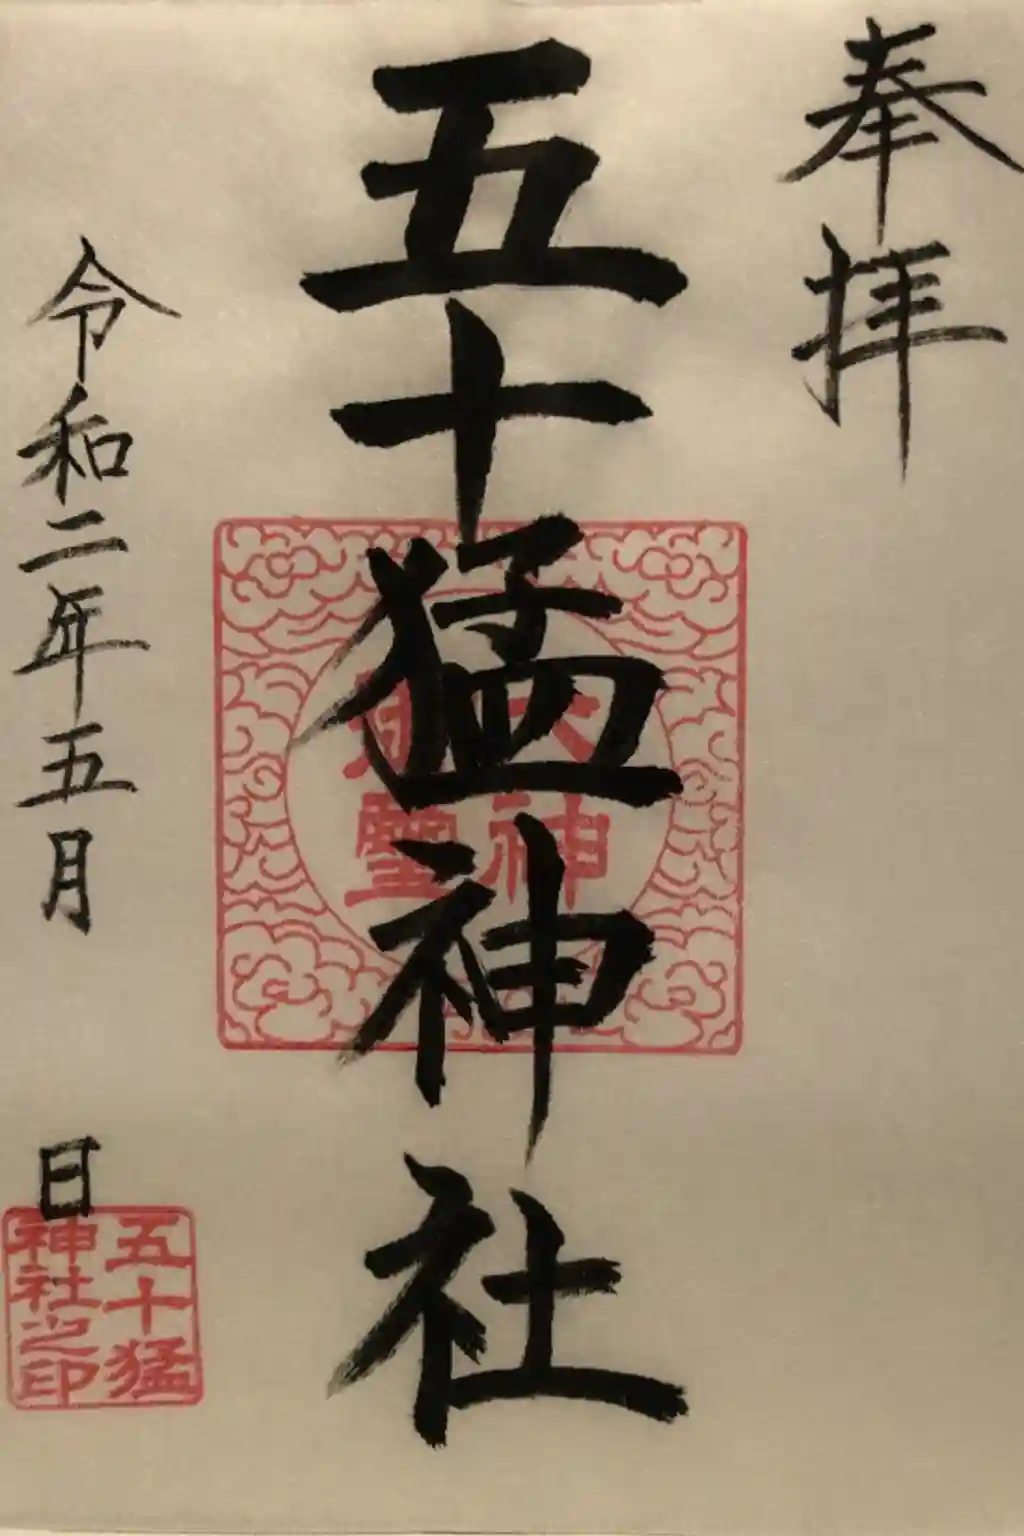 奉拝
五十猛神社
大神
靈
令和二年五月　日
五十猛
神社之印